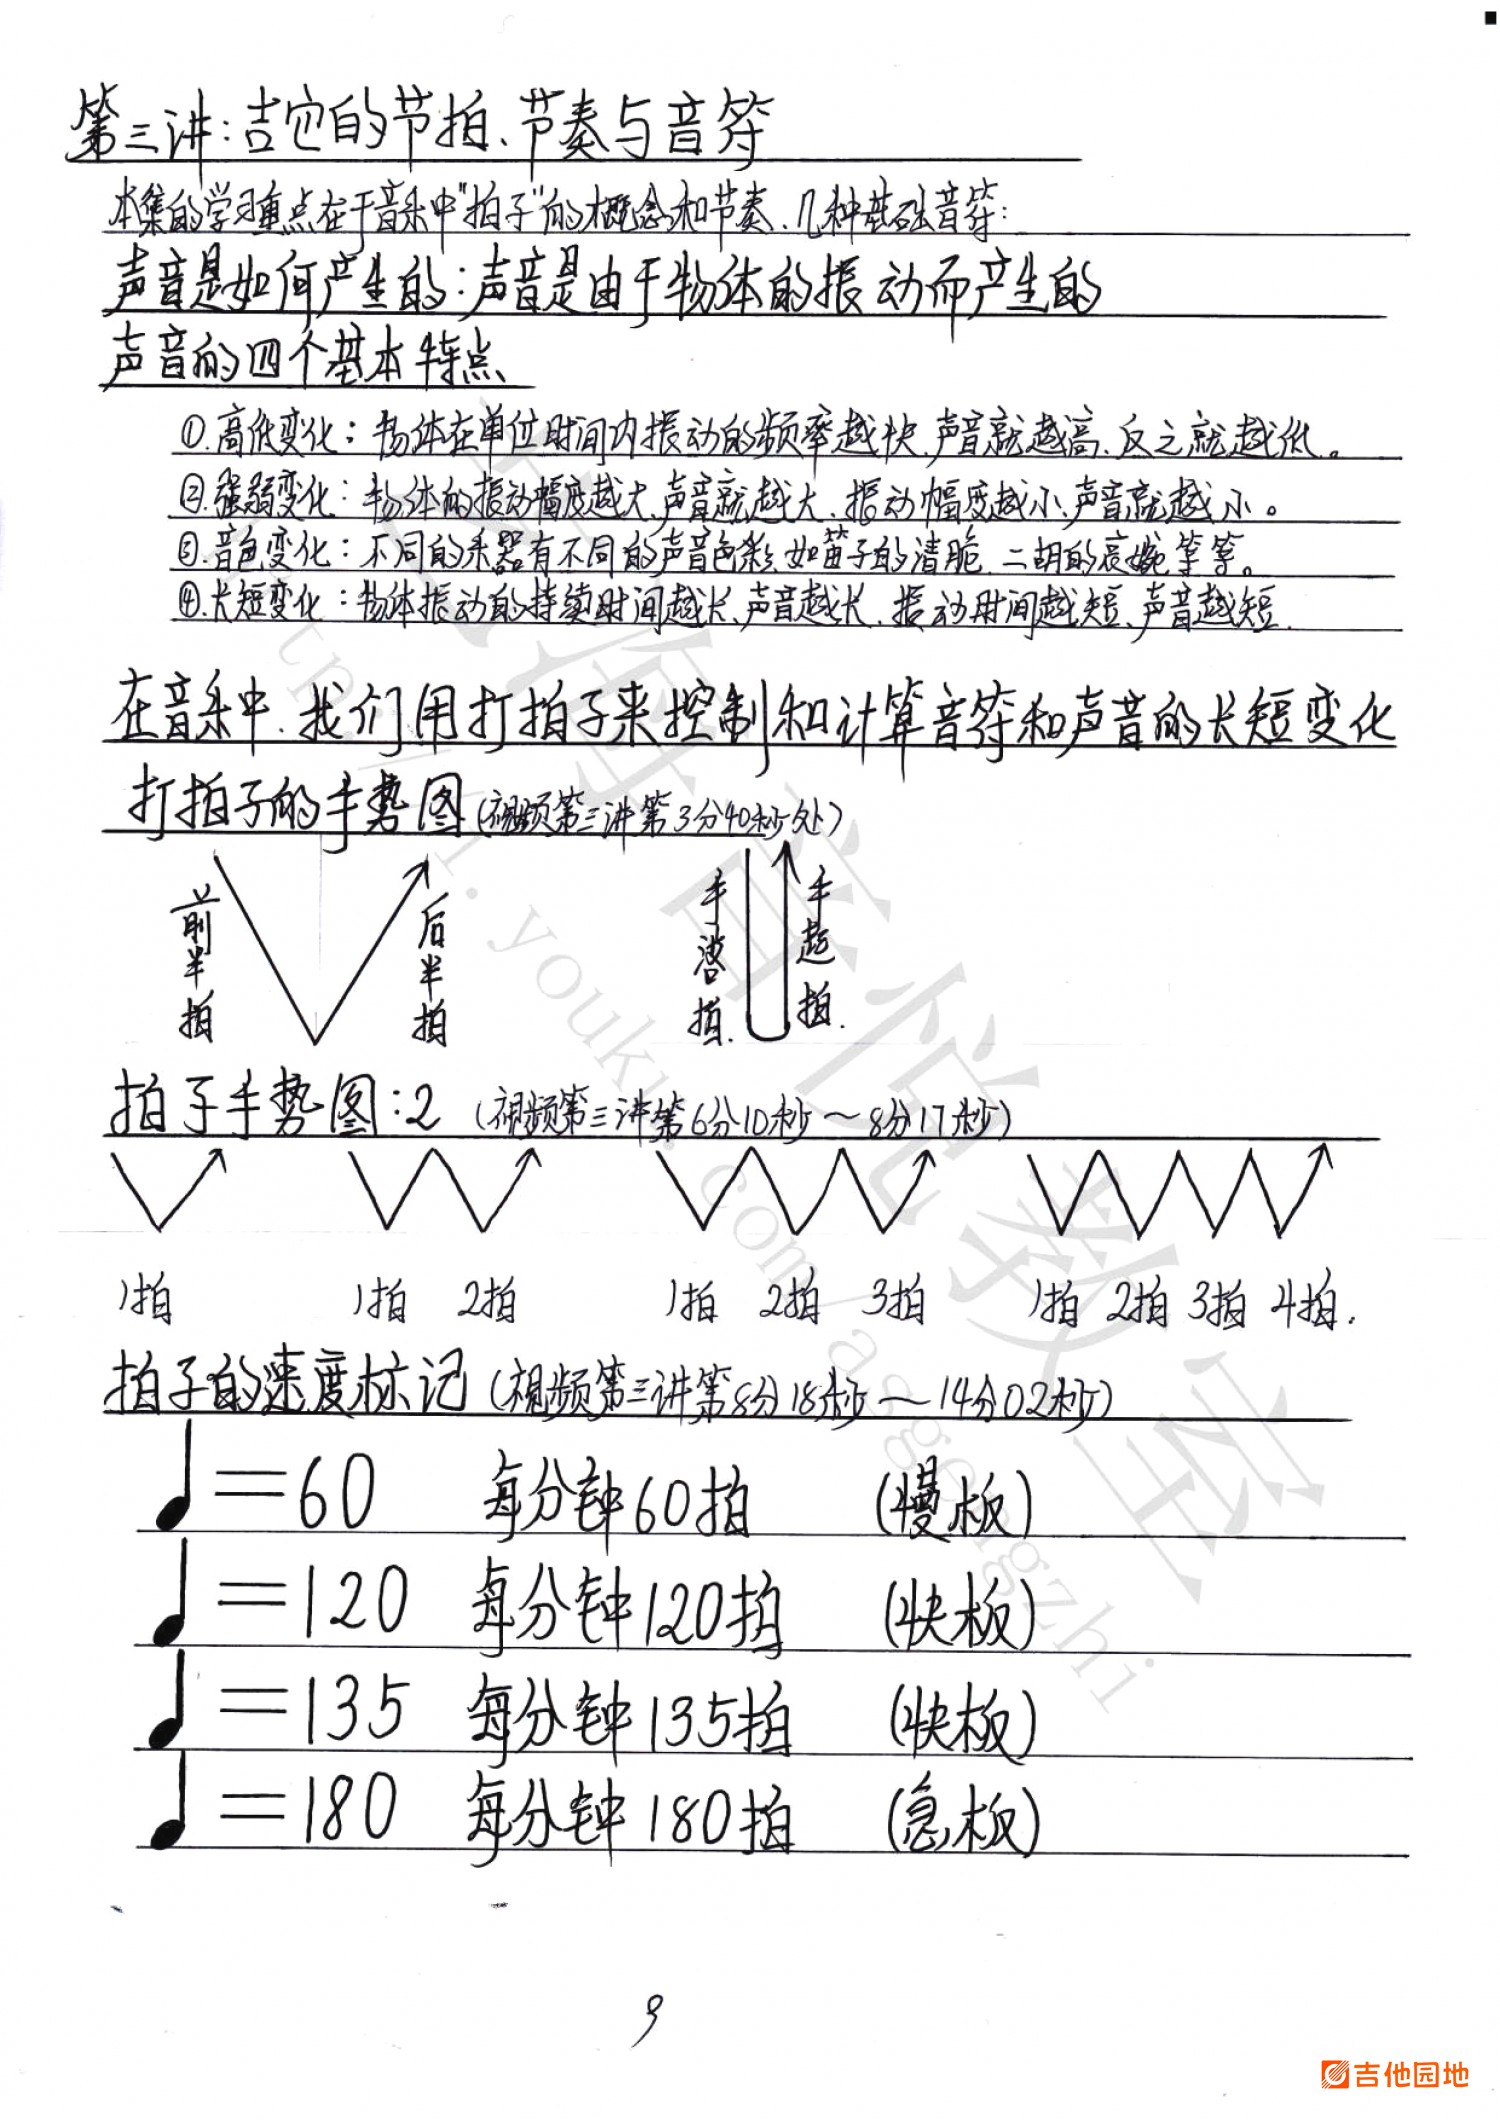 第三讲:吉它的节拍、节奏与音符
本集的学习重点在于音乐中"拍子"的概念和节奏、几种基础音符:
声音是如何产生的:声音是由于物体的振动而产生的
声音的四个基本特点
①.高低变化:物体在单位时间内振动的频率越快、声音就越高、反之就越低。
②.强弱变化:物体的振动幅度越大、声音就越大、振动幅度越小、声音就越小。
③.音色变化:不同的乐器有不同的声音色彩、如笛子的清脆、二胡的哀婉等等。
④.长短变化:物体振动的持续时间越长、声音越长、振动时间越短、声音越短.
在音乐中、我们用打拍子来控制和计算音符和声音的长短变化
打拍子的手势图(视频第三讲第3分40秒处)
前半拍 后半拍 手落拍. 手起拍.
拍子手势图:2 (视频第三讲第6分10秒~8分17秒)
1拍 1拍 2拍 1拍 2拍 3拍 1拍 2拍 3拍 4拍.
拍子的速度标记(视频第三讲第8分18秒~14分02秒)
♩=60 每分钟60拍 (慢板)
♩=120 每分钟120拍 (快板)
♩=135 每分钟135拍 (快板)
♩=180 每分钟180拍 (急板)
9
吉他园地